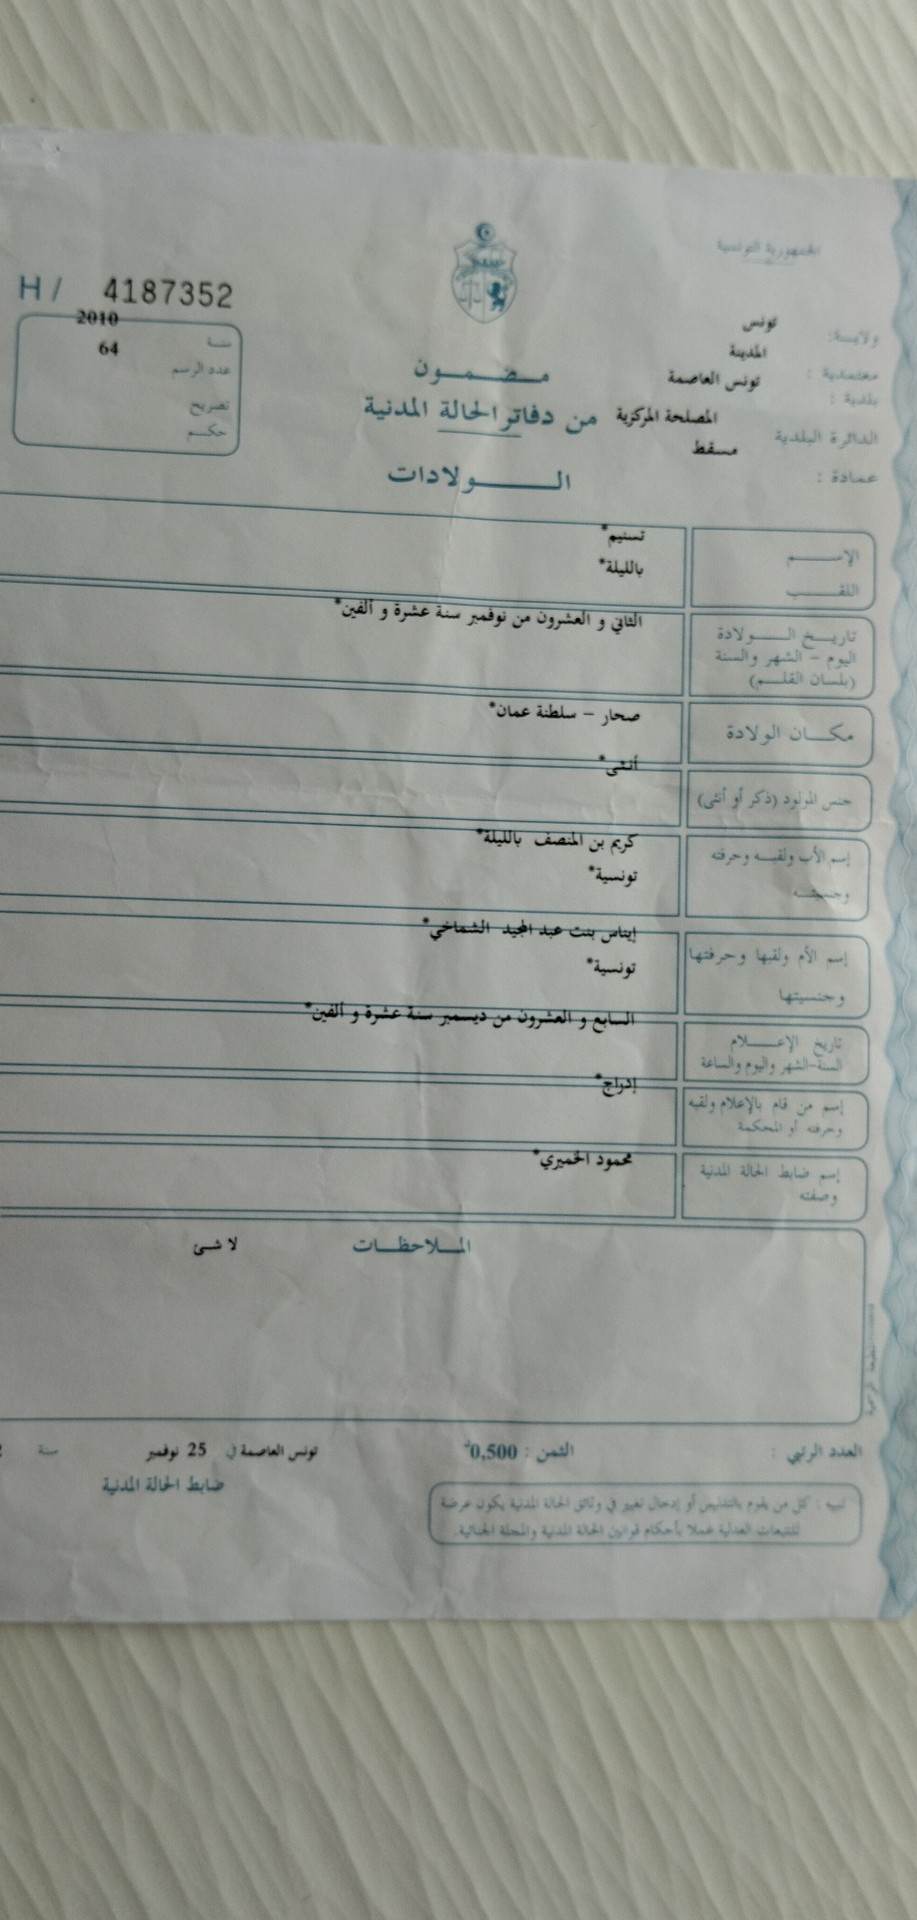 الجمهورية التونسية
H / 4187352
ولايـــة: تونس
معتمدية : المدينة
بلدية : تونس العاصمة
الدائرة البلدية المصلحة المركزية
عمادة : مسقط
سنـة 2010
عدد الرسم 64
تصريح
حكــم
مـــضـــمـــون
من دفاتر الحالة المدنية
الـــــــولادات
الإســـــم تسنيم*
اللقـــــب بالليلة*
تاريـــخ الـــــولادة
اليوم – الشهر والسنة
(بلسان القلـــم)
الثاني و العشرون من نوفمبر سنة عشرة و ألفين*
مكـــان الولادة صحار – سلطنة عمان*
جنس المولود (ذكر أو أنثى) أنثى*
إسم الأب ولقبـــه وحرفته كريم بن المنصف بالليلة*
وجنسيتـــه تونسية*
إسم الأم ولقبها وحرفتها إيناس بنت عبد المجيد الشماخي*
وجنسيتها تونسية*
تاريخ الإعـــــلام
السنة-الشهر واليوم والساعة
السابع و العشرون من ديسمبر سنة عشرة و ألفين*
إسم من قام بالإعلام ولقبه
وحرفته أو المحكمة
إدراج*
إسم ضابط الحالة المدنية
وصفته
محمود الخميري*
المـــلاحظـــات لا شئ
العدد الرتبي : الثمن : 0,500د تونس العاصمة في 25 نوفمبر سنة
ضابط الحالة المدنية
تنبيه : كل من يقوم بالتدليس أو إدخال تغيير في وثائق الحالة المدنية يكون عرضة
للتتبعات العدلية عملا بأحكام قوانين الحالة المدنية والمجلة الجنائية.